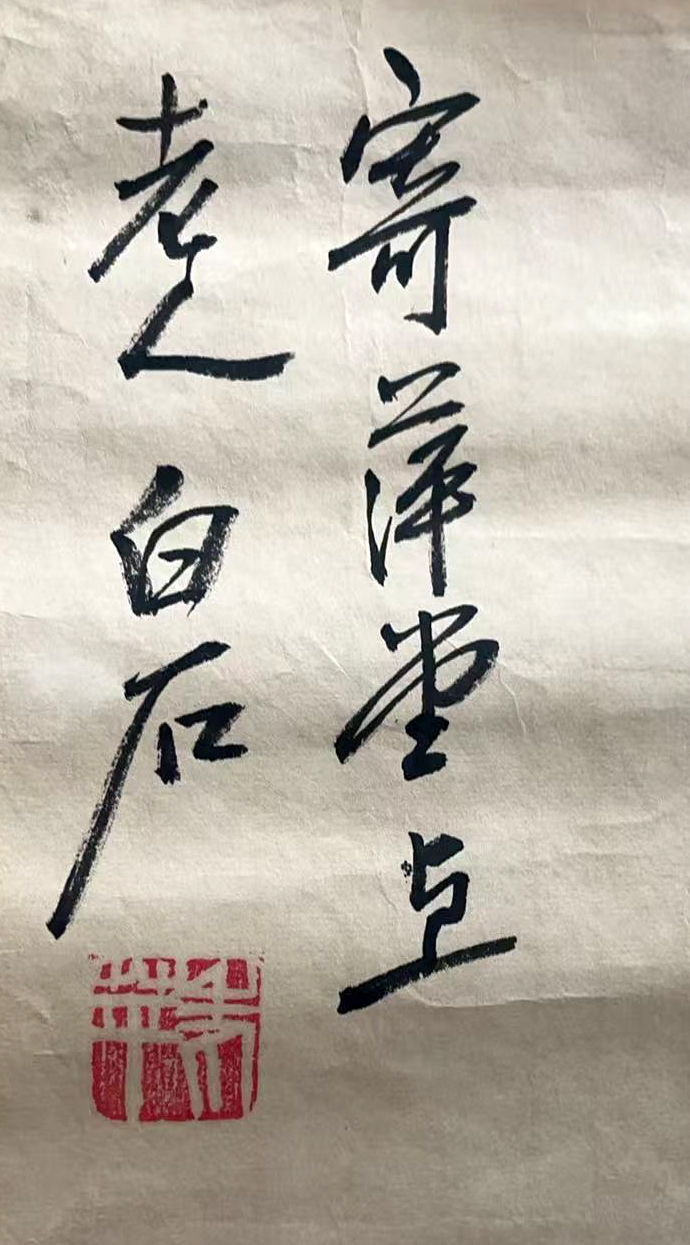 寄萍堂上
老人白石